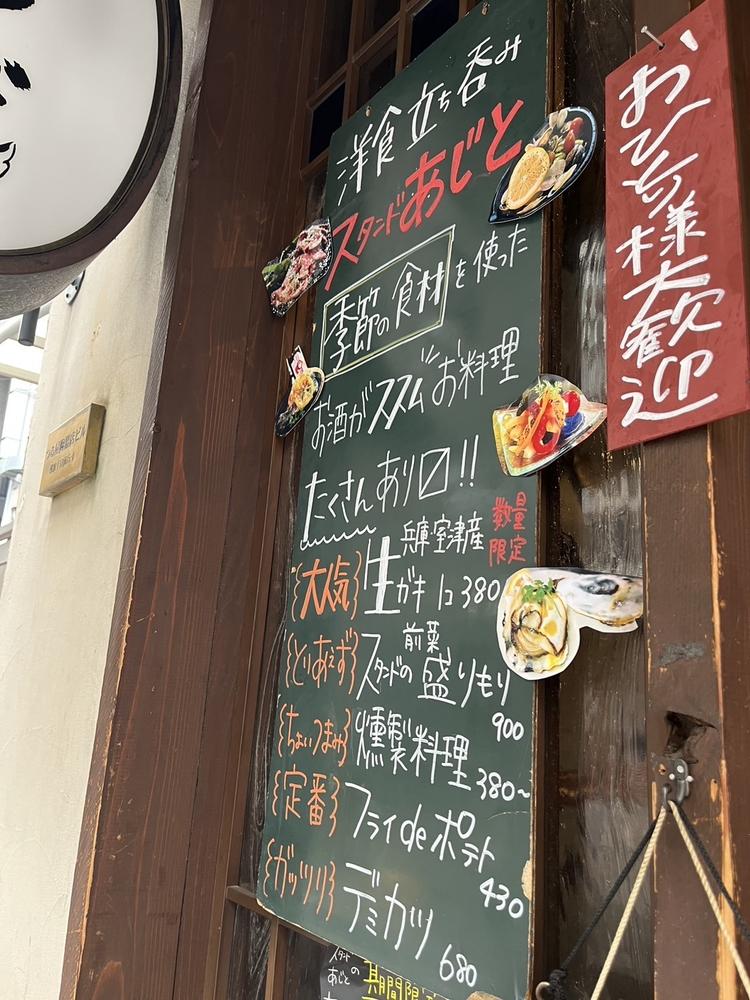 洋食立ち呑み
スタンドあじと
季節の食材を使った
お酒がススムお料理
たくさんあり〼!!
兵庫室津産
数量
限定
{大人気}生ガキ 1コ 380
前菜
{とりあえず}スタンドの盛りもり
900
{ちょいつまみ}燻製料理 380~
{定番}フライdeポテト
430
{ガッツリ}デミカツ 680
おひとり様大歓迎
スタンドの
あじと
期間限